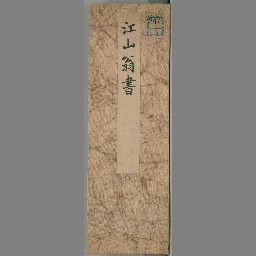 江山翁書